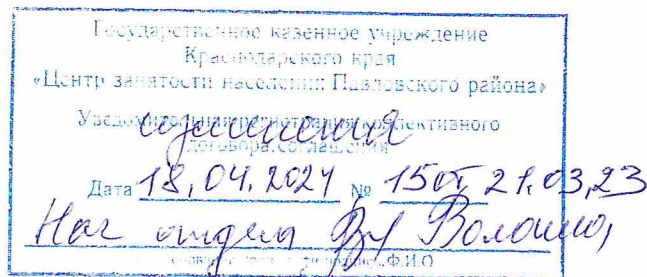 Государственное казенное учреждение
Краснодарского края
«Центр занятости населения Павловского района»
Уведомительная регистрация коллективного
договора, соглашения
изменения
Дата 18.04.2024 № 15 от 21.03.23
Нач отдела
Ф.И.О